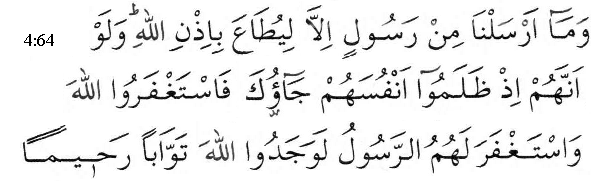 4:64 وَمَآ اَرْسَلْنَا مِنْ رَسُولٍ اِلَّا لِيُطَاعَ بِاِذْنِ اللهِ ۗ وَلَوْ
اَنَّهُمْ اِذْ ظَلَمُوٓا اَنْفُسَهُمْ جَآؤُكَ فَاسْتَغْفَرُوا اللهَ
وَاسْتَغْفَرَ لَهُمُ الرَّسُولُ لَوَجَدُوا اللهَ تَوَّاباً رَحِيماً